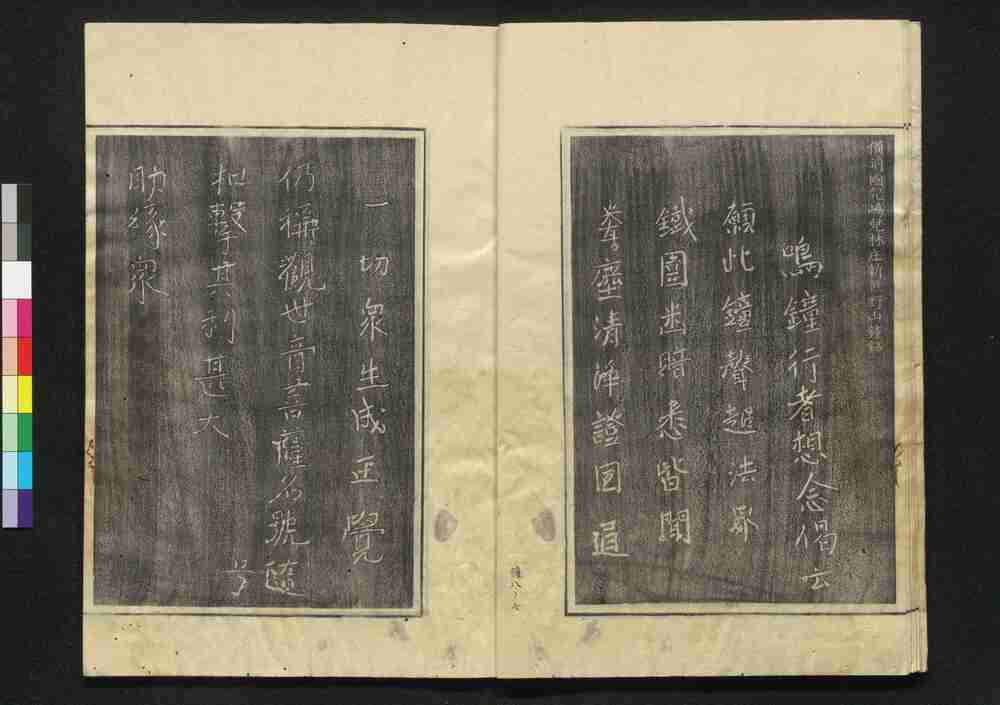 備前國兒嶋郡林庄新熊野山鐘銘
鳴鐘行者想念偈云
願此鐘聲超法界
鐵圍幽暗悉皆聞
塵清淨證圓通
鐘八ノ七
一切衆生成正覺
仍稱觀世音菩薩名號隨
号
扣擊其利甚大
助緣衆